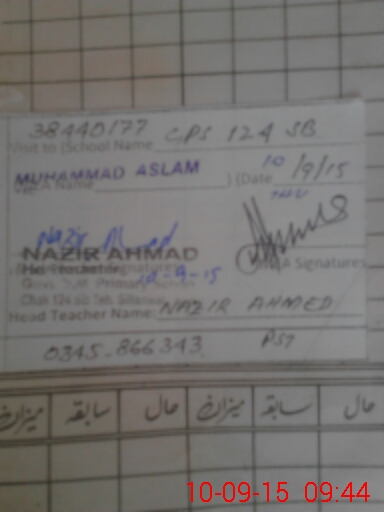 38440177 GPS 124 SB
Visit to (School Name
MUHAMMAD ASLAM 10/9/15
MEA Name ) (Date
THU
Nazir Ahmed
NAZIR AHMAD
Head Teacher Signatures 10-9-15 MEA Signatures
Govt Primary School
Chak 124 SB Teh.
Head Teacher Name: NAZIR AHMED
0345-866343 PST
میزان سابقہ حال میزان سابقہ حال
10-09-15 09:44